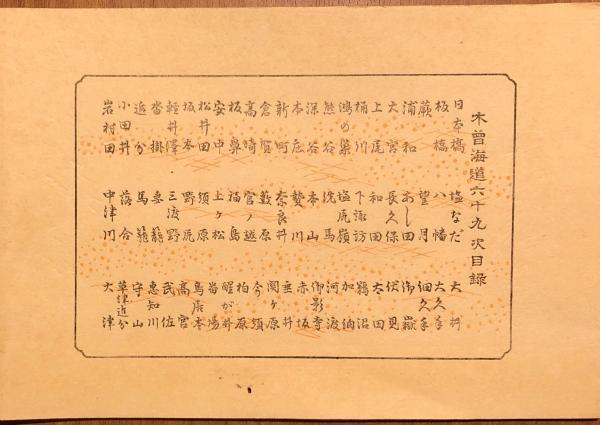 木曽海道六十九次目録
日本橋
板橋
蕨
浦和
大宮
上尾
桶川
鴻の巣
熊谷
深谷
本庄
新町
倉賀
高崎
板鼻
安中
松井田
坂本
軽井澤
沓掛
追分
小田井
岩村田
塩なだ
八幡
望月
あし田
長久保
和田
下諏訪
塩尻嶺
洗馬
本山
贄川
奈良井
薮原
宮ノ越
福島
上ヶ松
須原
野尻
三渡野
妻籠
馬籠
落合
中津川
大井
大久手
細久手
御嶽
伏見
太田
鵜沼
加納
河渡
御影寺
赤坂
垂井
関ヶ原
今須
柏原
醒が井
番場
鳥居本
高宮
武佐
恵知川
守山
草津追分
大津